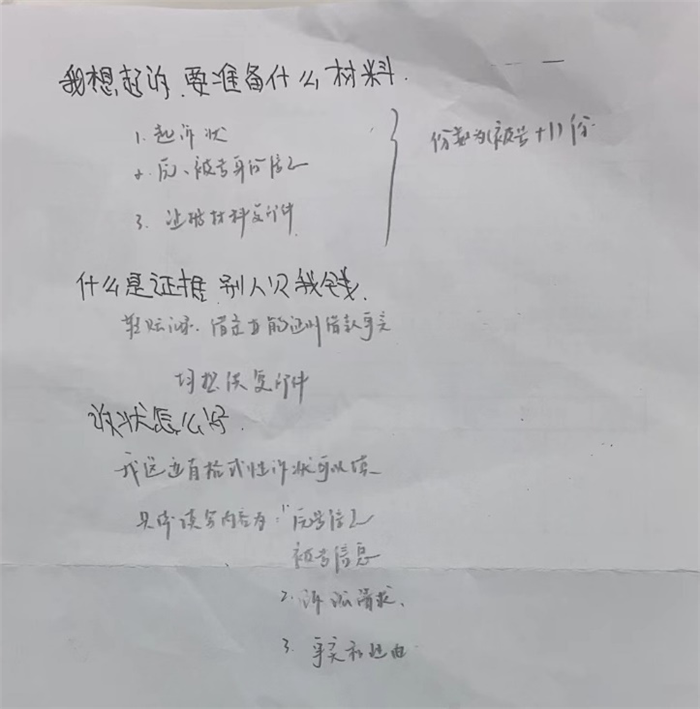 我想起诉,要准备什么材料.
1. 起诉状
2. 原、被告身份信息
3. 证据材料复印件
份数为(被告+1)份
什么是证据,别人欠我钱.
转账记录、借条等能证明借款事实
均提供复印件
诉状怎么写.
我这边有格式性诉状可以填
具体填写内容为:1、原告信息
被告信息
2. 诉讼请求.
3. 事实和理由